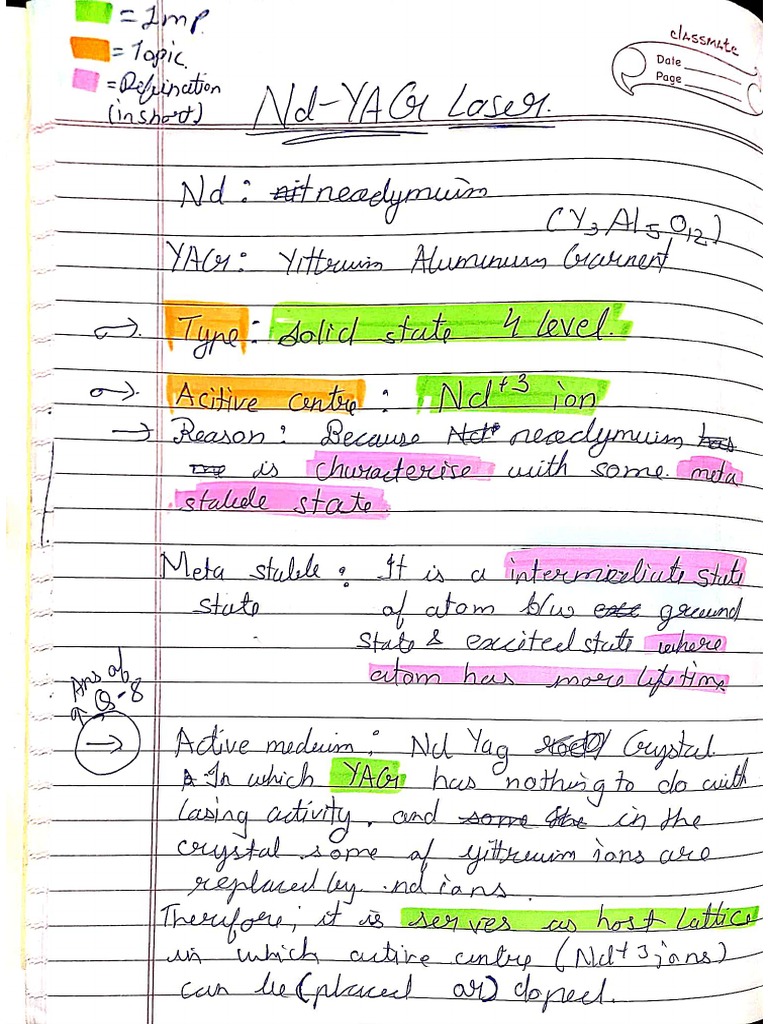 = Imp.
= Topic
= Defination
(in short)
classmate
Date
Page
Nd-YAG Laser.
Nd : neodymuim
(Y3Al5O12)
YAG: Yittrium Aluminium Garnent
Type: solid state 4 level.
Acitive centre : Nd+3 ion
→ Reason: Because neodymuim
is characterise with some meta
stable state
Meta stable : It is a intermediate state
state of atom b/w ground
state & excited state where
atom has more life time.
Ans of
Q-8
→ Active meduim: Nd Yag Crystal
In which YAG has nothing to do with
lasing activity. and in the
crystal some of yittruim ions are
replaced by nd ions.
Therefore, it is serves as host lattice
in which active centre (Nd+3 ions)
can be (placed or) doped.